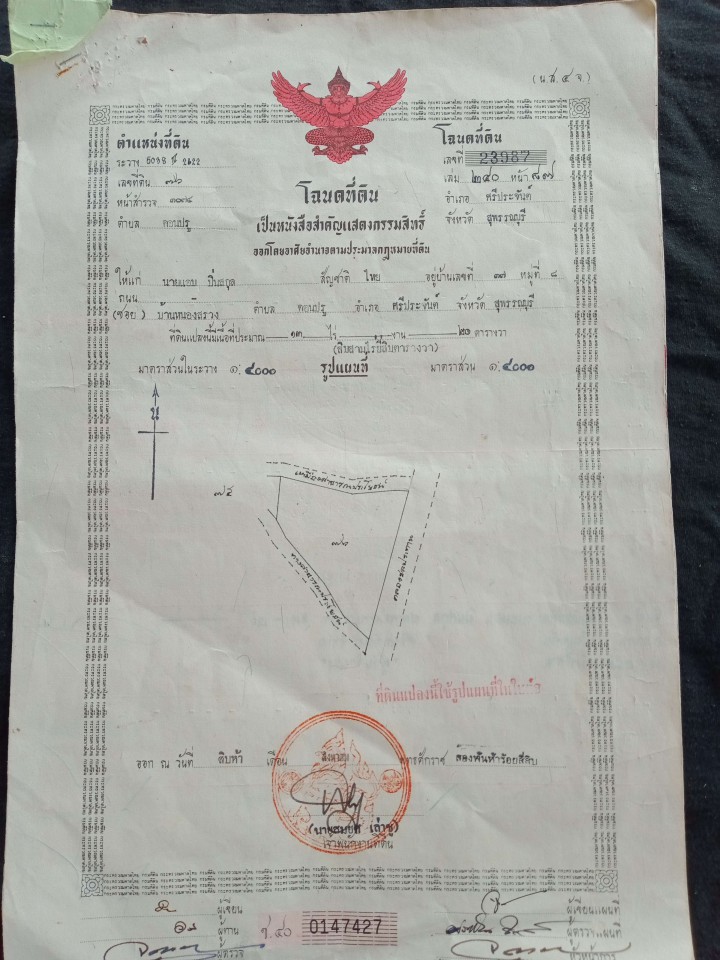 (น.ส.๔ จ.)
ตำแหน่งที่ดิน
ระวาง 5038 II 2622
เลขที่ดิน ๗๖
หน้าสำรวจ
ตำบล ดอนปรู
โฉนดที่ดิน
เลขที่ 23987
เล่ม ๒๔๐ หน้า ๘๗
อำเภอ ศรีประจันต์
จังหวัด สุพรรณบุรี
โฉนดที่ดิน
เป็นหนังสือสำคัญแสดงกรรมสิทธิ์
ออกโดยอาศัยอำนาจตามประมวลกฎหมายที่ดิน
ให้แก่ สัญชาติ ไทย อยู่บ้านเลขที่ ๓๗ หมู่ที่ ๘
ถนน
(ซอย) ตำบล ดอนปรู อำเภอ ศรีประจันต์ จังหวัด สุพรรณบุรี
ที่ดินแปลงนี้มีเนื้อที่ประมาณ ๑๓ ไร่ งาน ๒๐ ตารางวา
(สิบสามไร่ยี่สิบตารางวา)
มาตราส่วนในระวาง ๑:๔๐๐๐ รูปแผนที่ มาตราส่วน ๑:๔๐๐๐
น
๗๕
เหมืองสาธารณประโยชน์
๗๖
คลองชลประทาน
ทางสาธารณประโยชน์
ที่ดินแปลงนี้ใช้รูปแผนที่ในใบต่อ
ออก ณ วันที่ สิบห้า เดือน สิงหาคม พุทธศักราช สองพันห้าร้อยสี่สิบ
เจ้าพนักงานที่ดิน
ผู้เขียน
ผู้ทาน
ผู้ตรวจ
0147427
ผู้เขียนแผนที่
ผู้ตรวจแผนที่